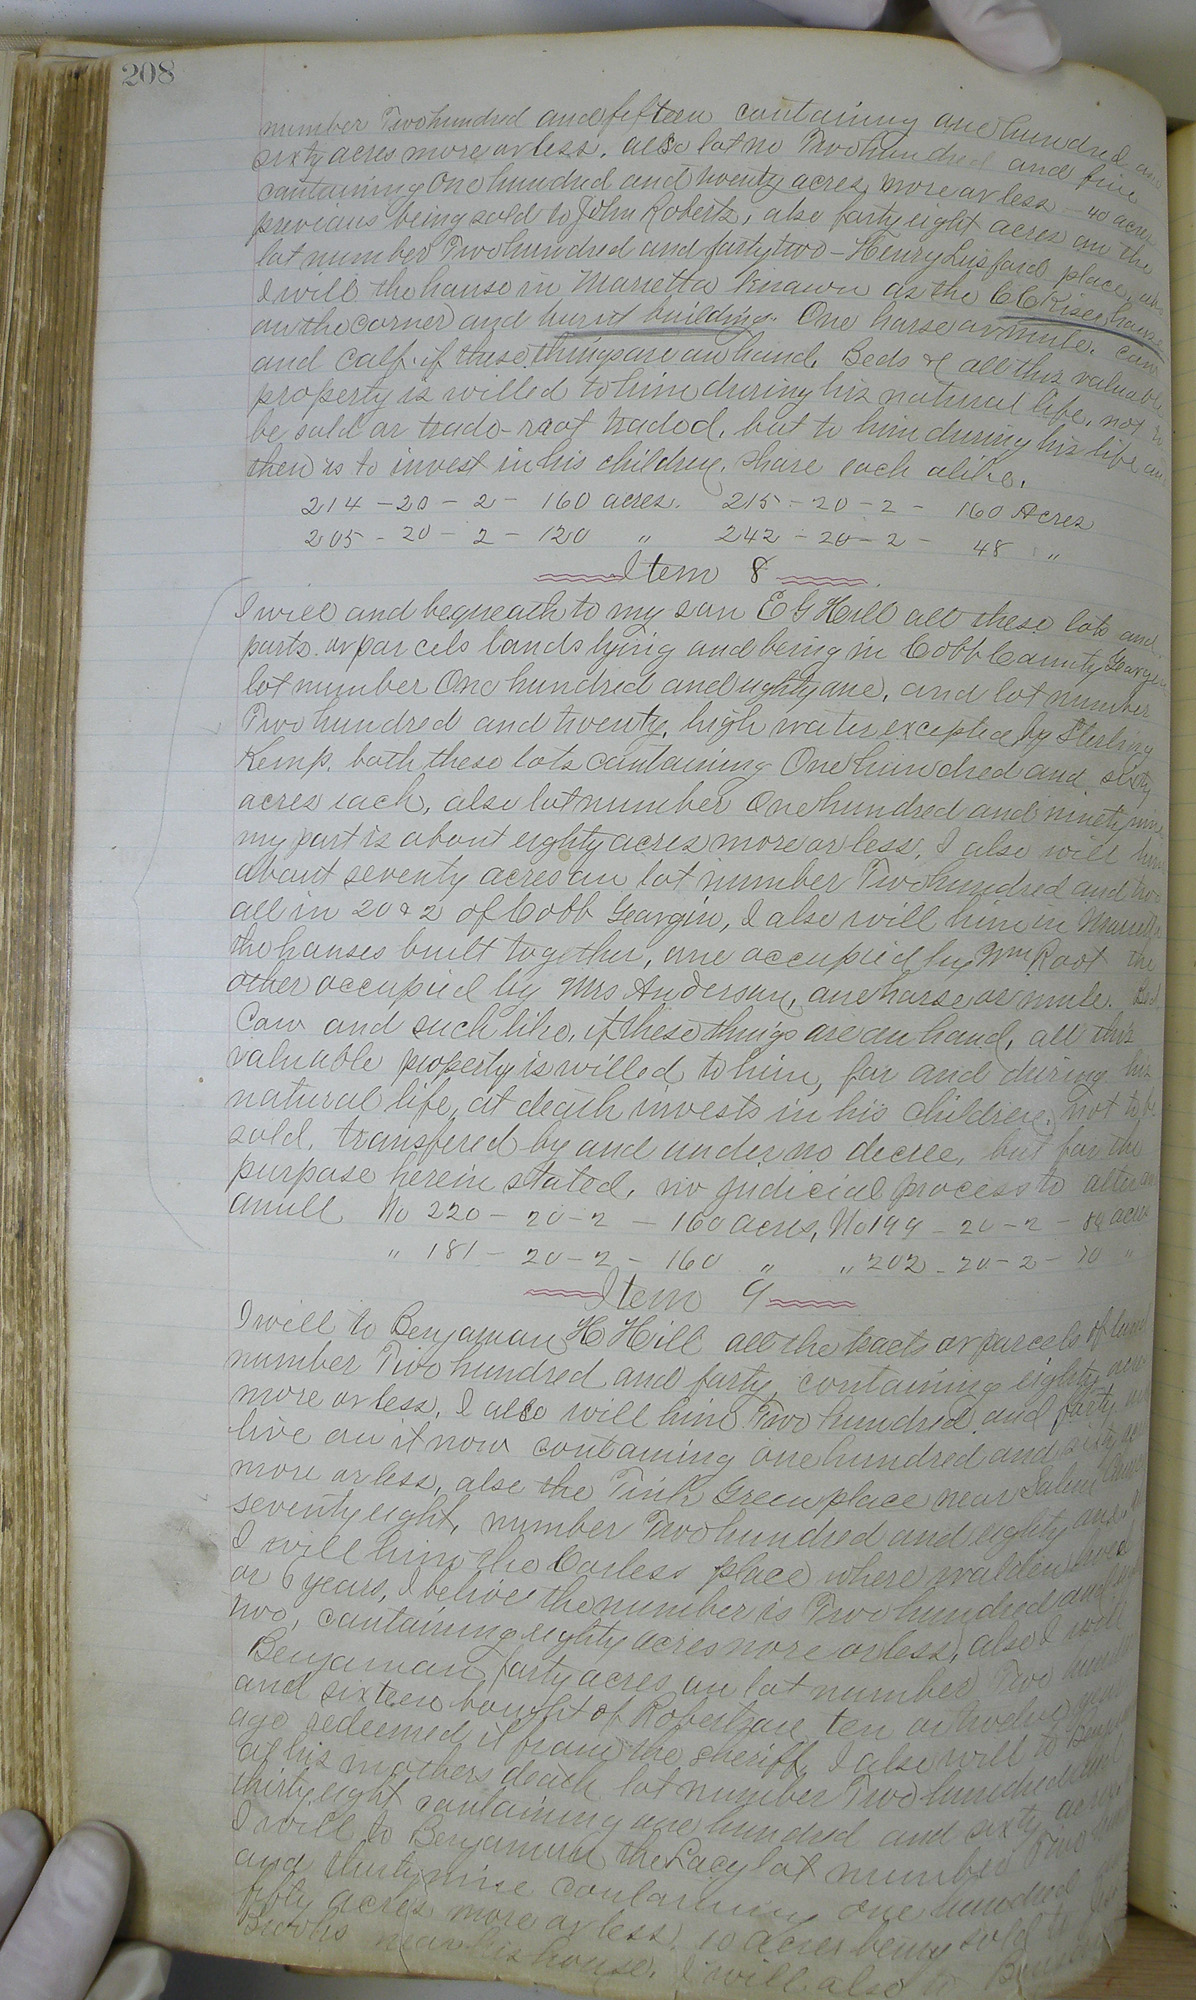 208
number Two hundred and fifteen containing one hundred and
sixty acres more or less. also lot no Two hundred and five
containing One hundred and twenty acres more or less - 40 acres
previous being sold to John Roberts, also forty eight acres on the
lot number Two hundred and forty two - Henry Lusford place, also
I will the house in Marietta known as the CC Kiser house
on the corner and burnt building. One horse or mule. Cow
and calf. if these things are on hand, Beds &c all this valuable
property is willed to him during his natural life, not to
be sold or trade - traded, but to him during his life and
then is to invest in his children, share each alike.
214 - 20 - 2 - 160 acres. 215 - 20 - 2 - 160 Acres
205 - 20 - 2 - 120 " 242 - 20 - 2 - 48 "
Item 8
I will and bequeath to my son E G Hill all these lots and
parts or parcels lands lying and being in Cobb County Georgia
lot number One hundred and eighty one, and lot number
Two hundred and twenty, high water excepted by Sterling
Kemp. both these lots containing One hundred and sixty
acres each, also lot number One hundred and ninety nine
my part is about eighty acres more or less, I also will him
about seventy acres on lot number Two hundred and two
all in 20 & 2 of Cobb Georgia, I also will him in Marietta
the houses built together, one occupied by Wm Root the
other occupied by Mrs Anderson, one horse or mule. Bed
Cow and such like, if these things are on hand, all this
valuable property is willed to him, for and during his
natural life, at death invests in his children, not to be
sold, transfered by and under no decree, but for the
purpose herein stated, no judicial process to alter or
anull No 220 - 20 - 2 - 160 acres, No 199 - 20 - 2 - 80 acres
" 181 - 20 - 2 - 160 " " 202 - 20 - 2 - 70 "
Item 9
I will to Benjaman H Hill all the tracts or parcels of land
number Two hundred and forty, containing eighty acres
more or less, I also will him Two hundred and forty one
live on it now containing one hundred and sixty acres
more or less, also the Tink Green place near Salem Church
seventy eight, number Two hundred and eighty one.
I will him the Corless place where walden lived
or 6 years, I belive the number is Two hundred and
two, containing eighty acres more or less, also I will
Benjaman forty acres on lot number Two hundred
and sixteen bought of Robert ten or twelve years
ago redeemed it from the sheriff, I also will to Benjaman
at his mothers death lot number Two hundred and
thirty eight containing one hundred and sixty acres
I will to Benjaman the Lacy lot number Two hundred
and thirty nine containing one hundred
fifty acres more or less, 10 acres being sold to
Brooks near his house. I will also to Benjaman